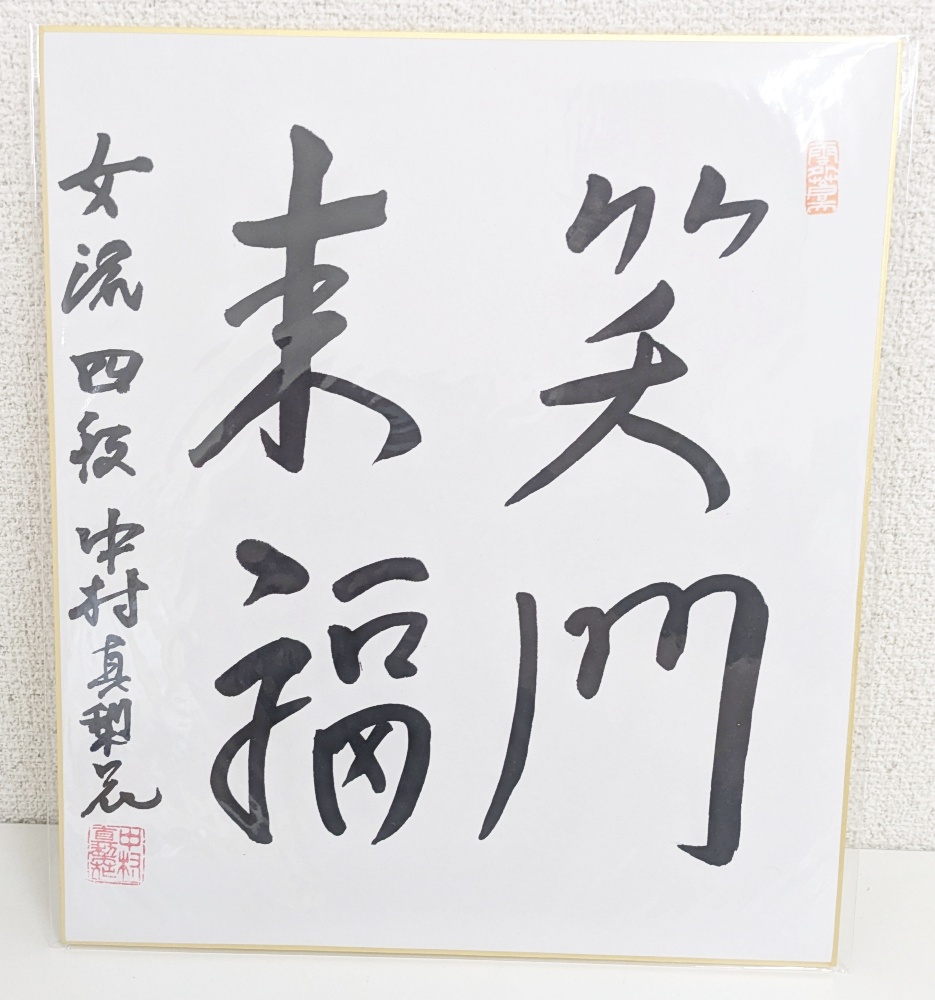 笑門
来福
女流四段 中村真梨花
中村真梨花